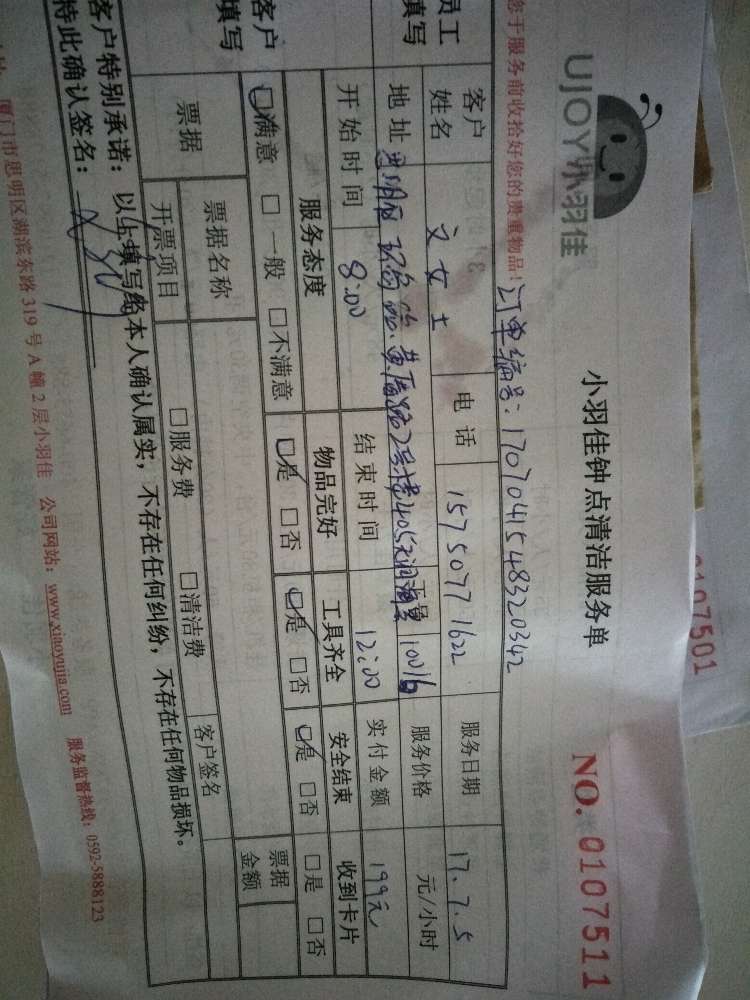 UJOY小羽佳
小羽佳钟点清洁服务单
NO. 0107511
0107501
您于服务前收拾好您的贵重物品!
订单编号:1707041548320342
员工
填写
客户
姓名
文女士
电话
15750771622
服务日期
17.7.5
地址
思明区
黄厝路2号楼405
员工
10016
服务价格
元/小时
开始时间
8:00
结束时间
12:00
实付金额
199元
客户
填写
服务态度
物品完好
工具齐全
安全结束
收到卡片
☑满意 □一般 □不满意
☑是 □否
☑是 □否
☑是 □否
□是 □否
票据
票据名称
票据
金额
开票项目
□服务费 □清洁费
客户签名
客户特别承诺:以上填写经本人确认属实,不存在任何纠纷,不存在任何物品损坏。
特此确认签名:
厦门市思明区湖滨东路319号A幢2层小羽佳 公司网站:www.xiaoyujia.com 服务监督热线:0592-5888123